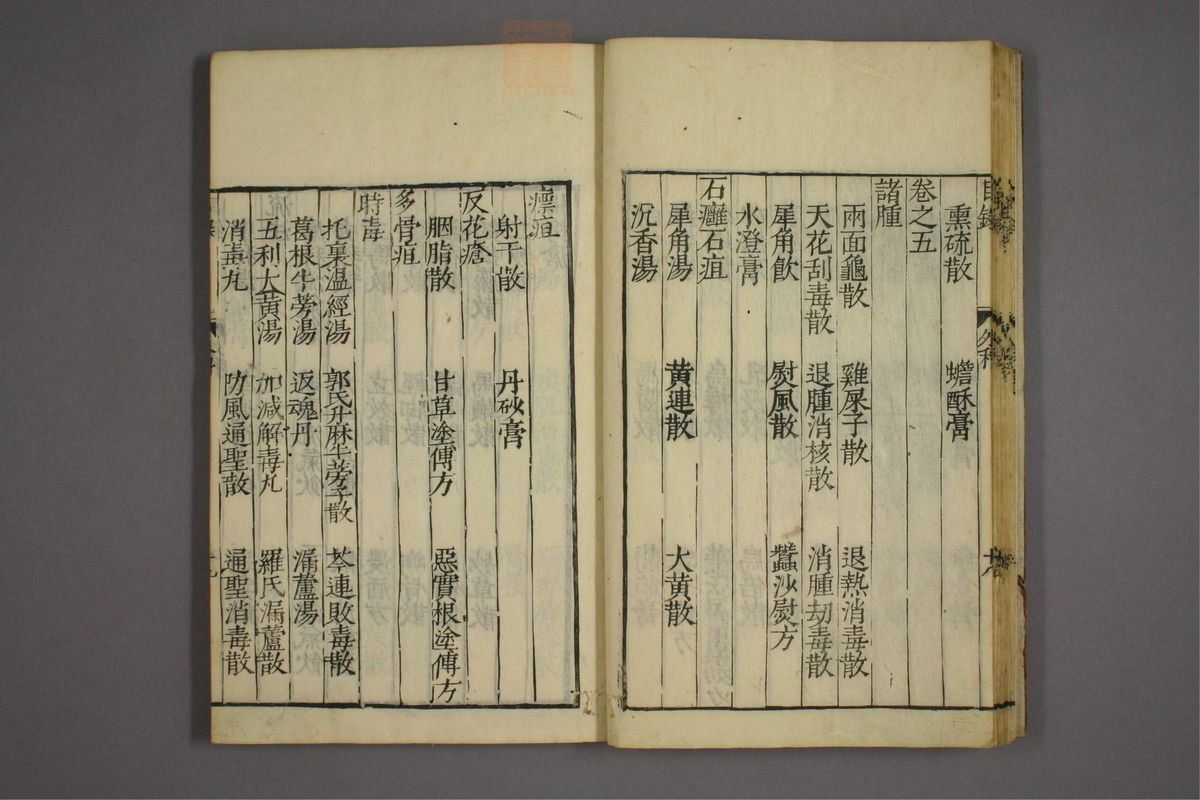 目錄 外科
熏硫散 蟾酥膏
卷之五
諸腫
兩面龜散 雞屎子散 退熱消毒散
天花刮毒散 退腫消核散 消腫劫毒散
犀角飲 熨風散 蠶沙熨方
水澄膏
石癰石疽
犀角湯 黃連散 大黃散
沉香湯
瘭疽
射干散 丹砂膏
反花瘡
胭脂散 甘草塗傅方 惡實根塗傅方
多骨疽
時毒
托裏温經湯 郭氏升麻牛蒡子散 芩連敗毒散
葛根牛蒡湯 返魂丹 漏蘆湯
五利大黃湯 加減解毒丸 羅氏漏蘆散
消毒丸 防風通聖散 通聖消毒散